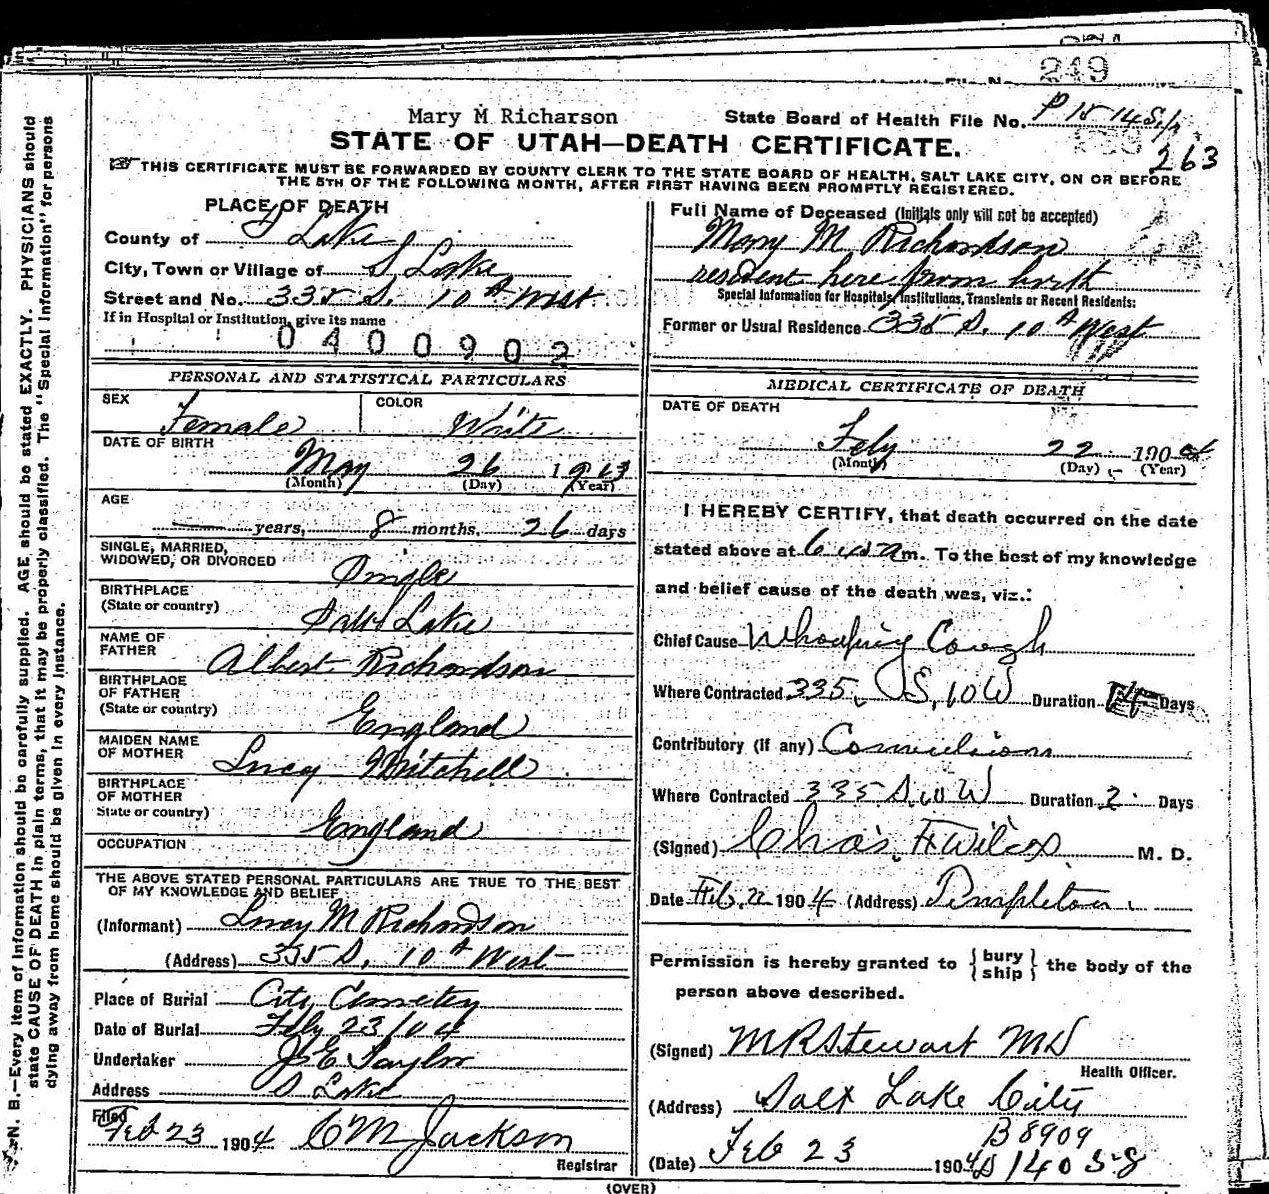 249
Mary M Richarson
State Board of Health File No.
STATE OF UTAH—DEATH CERTIFICATE.
263
THIS CERTIFICATE MUST BE FORWARDED BY COUNTY CLERK TO THE STATE BOARD OF HEALTH, SALT LAKE CITY, ON OR BEFORE
THE 5TH OF THE FOLLOWING MONTH, AFTER FIRST HAVING BEEN PROMPTLY REGISTERED.
PLACE OF DEATH
County of S Lake
City, Town or Village of S Lake
Street and No. 335 S. 10th West
If in Hospital or Institution, give its name
0400902
Full Name of Deceased (Initials only will not be accepted)
Mary M Richardson
resident here from birth
Special Information for Hospitals, Institutions, Transients or Recent Residents:
Former or Usual Residence 335 S. 10th West
PERSONAL AND STATISTICAL PARTICULARS
SEX Female COLOR White
DATE OF BIRTH
May 26 1903
(Month) (Day) (Year)
AGE
— years, 8 months, 26 days
SINGLE, MARRIED,
WIDOWED, OR DIVORCED Single
BIRTHPLACE
(State or country) Salt Lake
NAME OF
FATHER Albert Richardson
BIRTHPLACE
OF FATHER
(State or country) England
MAIDEN NAME
OF MOTHER Lucy Mitchell
BIRTHPLACE
OF MOTHER
State or country) England
OCCUPATION
THE ABOVE STATED PERSONAL PARTICULARS ARE TRUE TO THE BEST
OF MY KNOWLEDGE AND BELIEF
(Informant) Lucy M Richardson
(Address) 335 S. 10th West
Place of Burial City Cemetery
Date of Burial Feby 23/04
Undertaker J E Taylor
Address S Lake
Filed
Feb 23 1904 C M Jackson
Registrar
MEDICAL CERTIFICATE OF DEATH
DATE OF DEATH
Feby 22 1904
(Month) (Day) (Year)
I HEREBY CERTIFY, that death occurred on the date
stated above at m. To the best of my knowledge
and belief cause of the death was, viz.:
Chief Cause Whooping Cough
Where Contracted 335 S, 10 W Duration Days
Contributory (if any) Convulsions
Where Contracted 335 S. 10 W Duration 2 Days
(Signed) Chas. F Wilcox M. D.
Date Feb. 22 1904 (Address) Templeton.
Permission is hereby granted to { bury ship } the body of the
person above described.
(Signed) M R Stewart MD
Health Officer.
(Address) Salt Lake City
B 8909
(Date) Feb 23 1904
(OVER)
N. B.—Every item of information should be carefully supplied. AGE should be stated EXACTLY. PHYSICIANS should
state CAUSE OF DEATH in plain terms, that it may be properly classified. The "Special Information" for persons
dying away from home should be given in every instance.